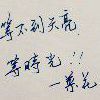 等不到天亮
等時光!!
一等花